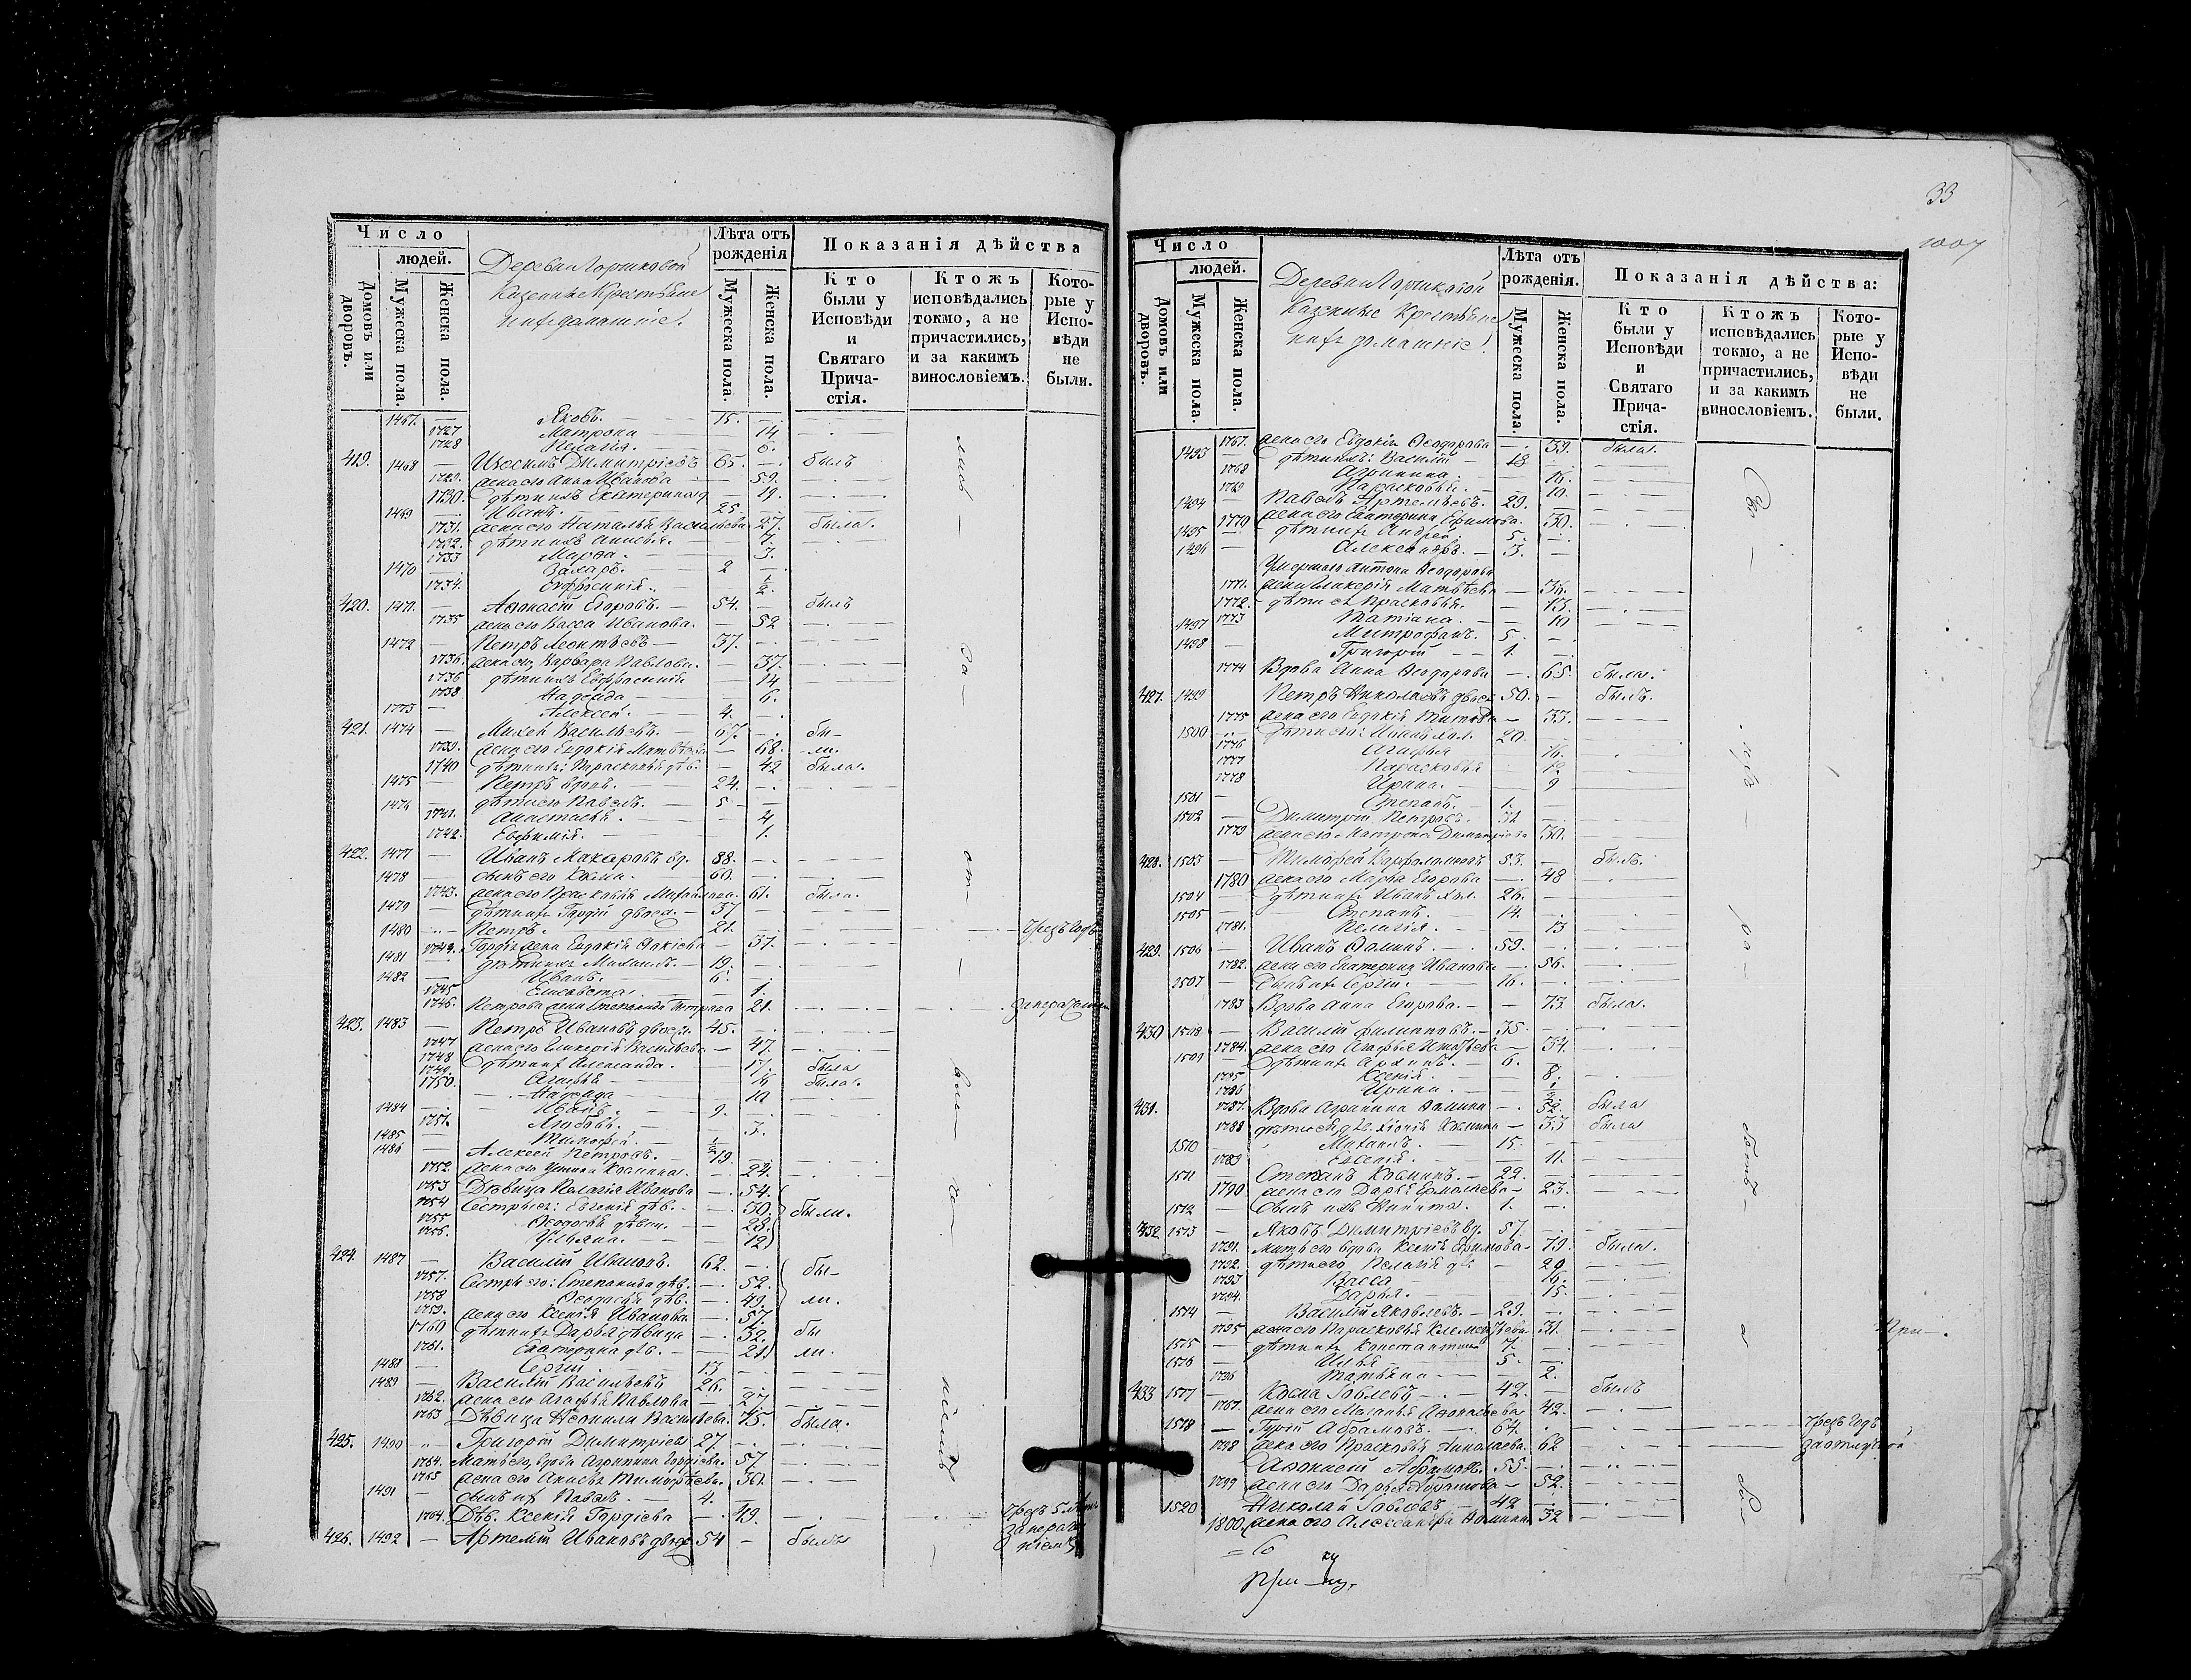 Число
людей.
Домовъ или дворовъ.
Мужеска пола.
Женска пола.
Деревни Горшковой
Казенные Крестьяне
и ихъ домашніе.
Лѣта отъ рожденія
Мужеска пола.
Женска пола.
Показанія дѣйства
Кто были у Исповѣди и Святаго Причастія.
Ктожъ исповѣдались токмо, а не причастились, и за какимъ винословіемъ.
Которые у Исповѣди не были.
1467. — Яковъ. — 15. —
1727 Матрона — 14
1728 Пелагія. — 6.
419. 1468 — Димитріевъ 65. — былъ
1729. жена его Анна Иванова — 59.
1730. дѣти ихъ Екатерина 19.
1469 — Иванъ. — 25 —
1731. жена его Наталья Васильева 27. была.
1732. дѣти ихъ Анисья. — 7.
1733 Марѳа. — 3.
1470 — Захаръ. — 2 —
1734. Евфросинія. — ½
420. 1471. — Аѳонасій Егоровъ. — 54. — былъ
1735 жена его Васса Иванова. — 52
1472 — Петръ Леонтьевъ — 37. —
1736. жена его Варвара Павлова. — 37.
1736 дѣти ихъ Евфросинія — 14
1738 Надежда — 6.
1773 — Алексей. — 4. —
421. 1474 — Михей Васильевъ. — 67. — бы-
1739. жена его Евдокія Матвѣева — 68. -ли.
1740 дѣти ихъ: Парасковья дѣв. — 42 была.
1475 — Петръ вдов. — 24. —
1476 — дѣти его Павелъ. — 5 —
1741. Анастасья. — 4
1742. Евфимія. — 1.
422. 1477 — Иванъ Макаровъ вд. 88. —
1478 — сынъ его Козма. — 60. —
1743. жена его Прасковья Михайлова. 61. была.
1479 — дѣти ихъ Гордій двоеж. — 37 —
1480 — Петръ. 21. — Чрезъ Годъ
1744. Гордія жена Евдокія — 37.
1481 — дѣти ихъ Михаилъ. — 19. —
1482 — Иванъ. 6. —
1745 Елисавета. — 1.
1746. Петрова жена Степанида 21.
423. 1483 — Петръ Ивановъ двоеж. 45. —
1747 жена его Гликерія Васильева — 47.
1748 дѣти ихъ — 17. была
1749. Агафья — 16 была.
1750. Надежда — 10
1484 — Иванъ. — 9. —
1751. Любовь. — 3.
1485 — Тимоѳей. — ½
1486 — Алексей Петровъ. — 19.
1752. жена его Устинья Козмина. — 22.
1753 Дѣвица Пелагія Иванова — 54.
1754 Сестры ея: Евгенія дѣв. — 30. были.
1755 Ѳеодосья дѣвиц. — 28.
1756. Ульяна. — 12
424. 1487 — Василій Ивановъ. 62. — бы-
1757. Сестры его: Степанида дѣв. — 52.
1758 Ѳеодосья дѣв. — 49. ли.
1759. жена его Ксенія Иванова — 57.
1760 дѣти ихъ Дарья дѣвица — 32. бы
1761. Екатерина дѣв. — 21. ли.
1488 — Сергій — 13 —
1489 — Василій Васильевъ 26. —
1762. жена его Агафья Павлова — 27.
1763 Дѣвица Неонила Васильева. 75. была.
425. 1490 — Григорій Димитріевъ 27. —
1764. Мать его, вдова Агрипина Гордіева. 57.
1765 жена его Анисья Тимоѳеева. 30.
1491 — сынъ их Павелъ. — 4. —
1764. Дѣв. Ксенія Гордіева — 49. Чрезъ 5 лѣтъ
426. 1492 — Артемій Ивановъ двоеж 54 — былъ
33
1007
Число
людей.
Домовъ или дворовъ.
Мужеска пола.
Женска пола.
Деревни Горшковой
Казенные Крестьяне
и ихъ домашніе.
Лѣта отъ рожденія.
Мужеска пола.
Женска пола.
Показанія дѣйства:
Кто были у Исповѣди и Святаго Причастія.
Ктожъ исповѣдались токмо, а не причастились, и за какимъ винословіемъ.
Которые у Исповѣди не были.
1767. жена его Евдокія Ѳеодорова — 53. была.
1493 — дѣти ихъ: Василій — 18 —
1768 Агрипина. — 16.
1769 Парасковья. — 10.
1494 — Павелъ Артемьевъ. 29. —
1770 жена его Екатерина Ефимова. 30.
1495 — дѣти ихъ Андрей. 5. —
1496 — Александръ. — 3. —
Умершаго Антона Ѳеодорова
1771. жена Гликерія Матвѣева — 36.
1772. дѣти ея Прасковья. — 13.
1773 Татіана. — 10
1497 — Митрофанъ. 5. —
1498 — Григорій — 1. —
1774 Вдова Анна Ѳеодорова — 65. была.
427. 1499 Петръ Николаевъ двоеж 50. — былъ.
1775 жена его Евдокія Титова — 33.
1500 дѣти его: Иванъ хол. 20.
1776 Агафья 16.
1777 Параскевья
1778 Ирина. 9
1501 — Степанъ. — 1. —
1502 — Димитрій Петровъ. 31 —
1779 жена его Матрона Димитріева 30.
428. 1503 — Тимоѳей Варфоломеевъ 53. — былъ.
1780 жена его Марѳа Егорова — 48
1504 — дѣти ихъ Иванъ хол. 26. —
1505 — Степанъ. 14. —
1781. Пелагія. — 13
429. 1506 — Иванъ Ѳоминъ. — 59. —
1782. жена его Екатерина Иванова — 56.
2507 — Сынъ их Сергій. — 16. —
1783 Вдова Анна Егорова. — 73. была.
430 1508 — Василій Филиповъ. — 35. —
1784. жена его Агафья Игнатьева — 34.
1509 — дѣти ихъ Архипъ. — 6. —
1785 Ксенія. — 8.
1786 Ирина. — ½
431. 1787. Вдова Агрипина Ѳомина — 52. была
1788 — 33 была
1510 — Михаилъ. — 15. —
1789 Евгенія. — 11.
1511 — Степанъ Козминъ. — 22. —
1790 жена его Дарья Ермолаева — 23.
1512 — сынъ ихъ Никита. 1. —
432. 1513 — Яковъ Димитріевъ вд. 57. —
1791. мать его вдова Ксенія Ефимова — 79. была.
1792. дѣти его Пелагія дѣв — 20.
1793 Васса 16.
1794. Дарья. 15.
1514 — Василій Яковлевъ. — 29. —
1795 жена его Параскевья Клементьева 31.
1515 — дѣти ихъ Константинъ 7. —
1516 — Илья 5. —
1796 Татьяна — 2.
433 1517 — Козма Іовлевъ — 42. — былъ
1767. жена его Меланья Аѳонасьева 42.
1518 — Гурій Абрамовъ. — 64. Чрезъ Годъ
1798 жена его Прасковья Николаева. 62 за отлучкой
Аѳонасій Абрамовъ. 55 —
1799 жена его Дарья Абрамова — 52.
1520 Николай Іовлевъ — 42 —
1800. жена его Александра Ѳомина 32